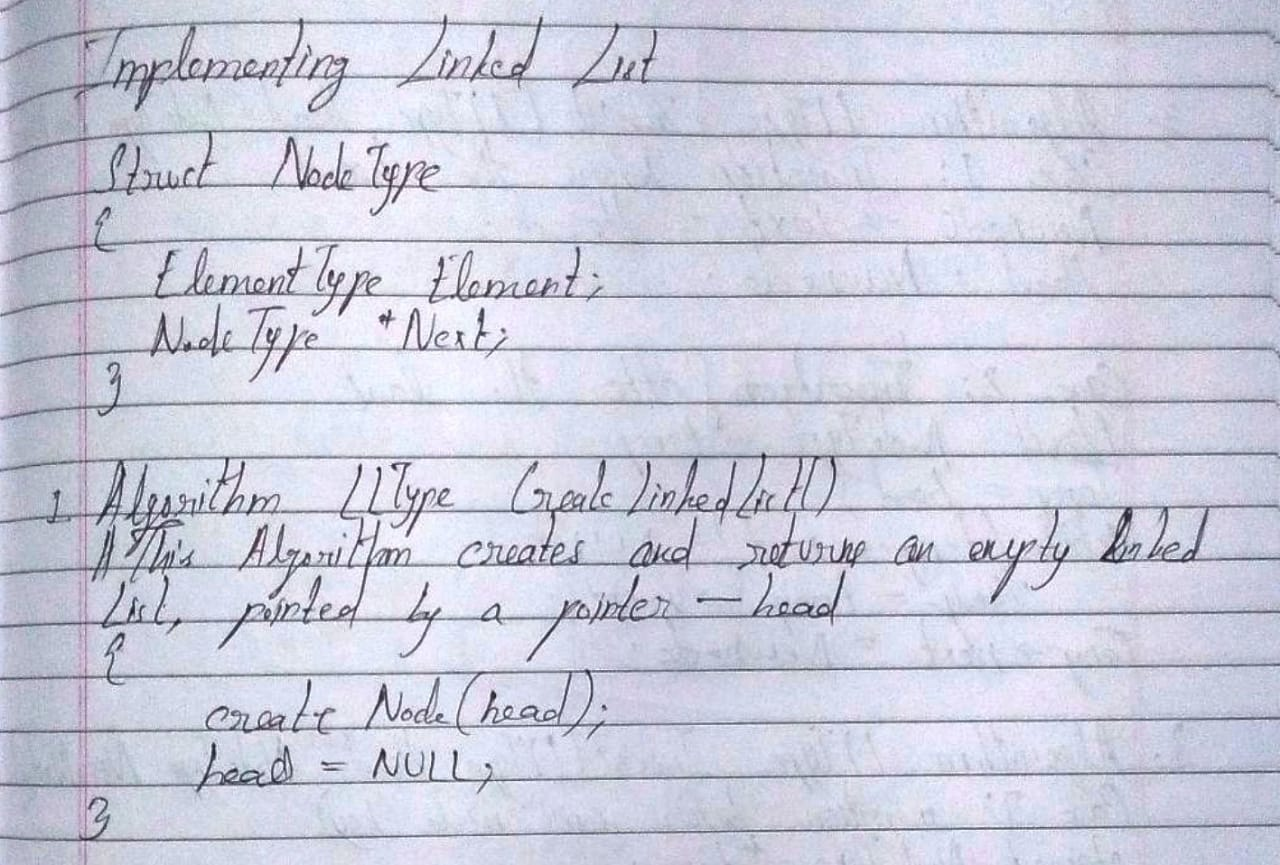 Implementing Linked List
Struct NodeType
{
ElementType Element;
NodeType *Next;
}
1. Algorithm LLType CreateLinkedList()
//This Algorithm creates and returns an empty linked
List, pointed by a pointer – head
{
create Node(head);
head = NULL;
}